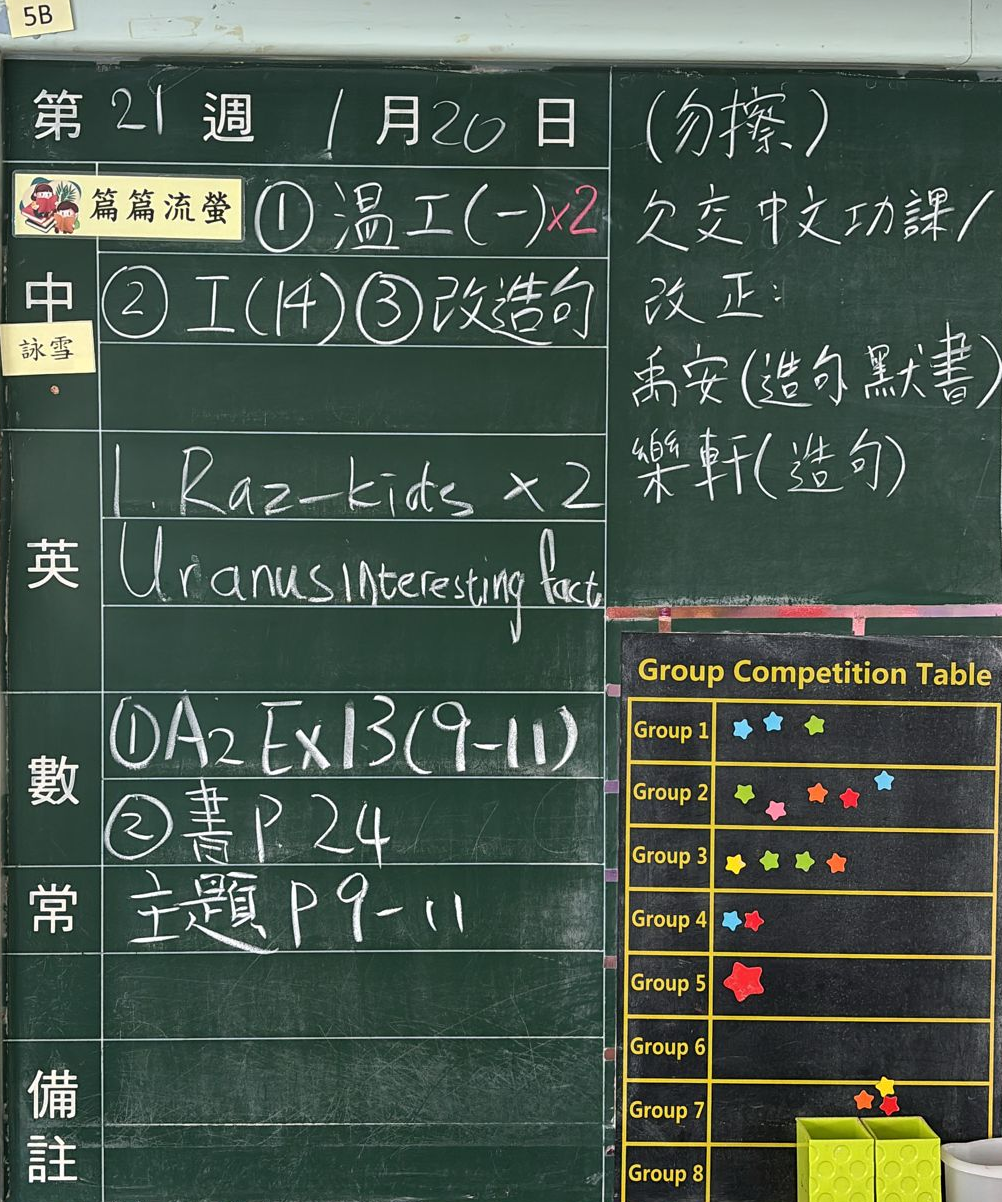 5B
第21週 1月20日
篇篇流螢 ①溫工(一)×2
中 ②工(14)③改造句
詠雪
英
1. Raz-kids ×2
Uranus interesting fact
數
①A2 Ex13(9-11)
②書P.24
常 主題P9-11
備註
(勿擦)
欠交中文功課/
改正:
禹安(造句 默書)
樂軒(造句)
Group Competition Table
Group 1
Group 2
Group 3
Group 4
Group 5
Group 6
Group 7
Group 8